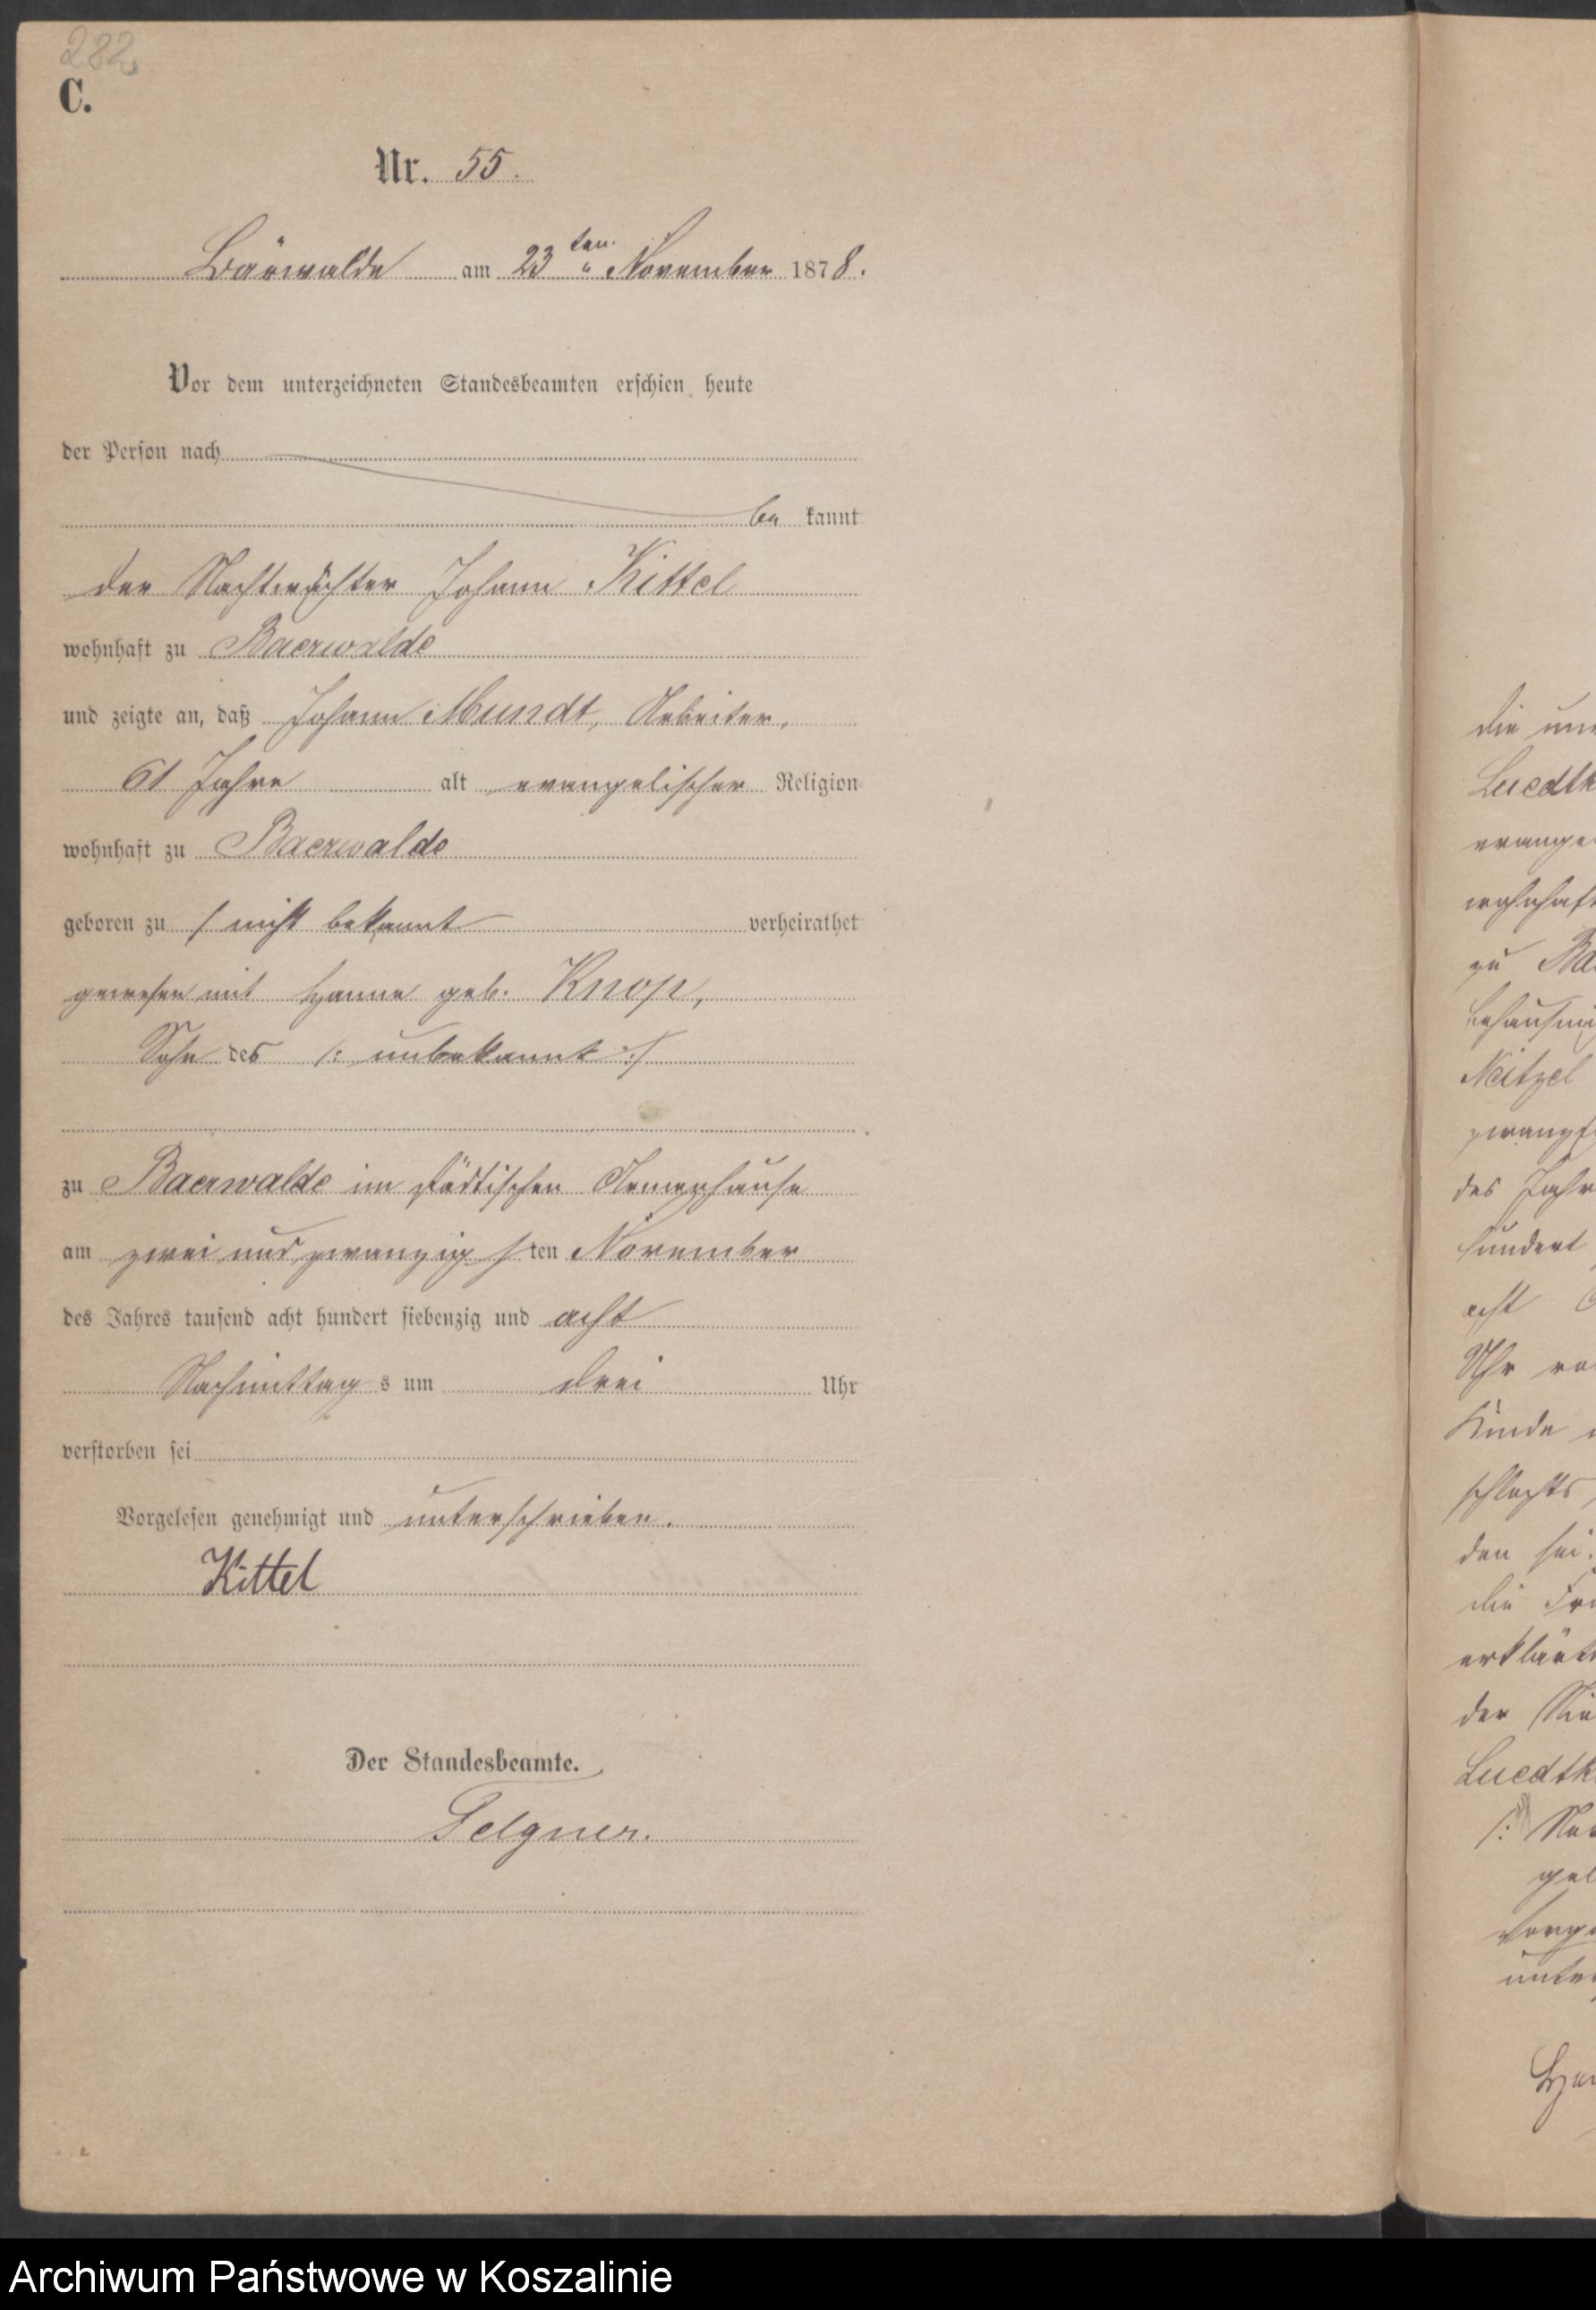 282
C.
Nr. 55.
Bärwalde am 23ten November 1878.
Vor dem unterzeichneten Standesbeamten erschien heute
der Person nach
be kannt
der Nachtwächter Johann Kittel
wohnhaft zu Baerwalde
und zeigte an, daß Johann Mundt, Arbeiter,
61 Jahre alt evangelischer Religion
wohnhaft zu Baerwalde
geboren zu / nicht bekannt verheirathet
gewesen mit Hanne geb. Knop,
Sohn des /: unbekannt :/
zu Baerwalde im städtischen Armenhause
am zwei und zwanzig sten November
des Jahres tausend acht hundert siebenzig und acht
Nachmittag s um drei Uhr
verstorben sei
Vorgelesen genehmigt und unterschrieben.
Kittel
Der Standesbeamte.
Selgner.
die
Luedtk
evange
wohnhaft
zu Ba
behausun
Neitzel
des Jahr
hundert
acht
Uhr vo
Kinde
schlechts
den sei.
die Fr
erklärte
der
Luedtk
/:
gel
Vorge
unter
Archiwum Państwowe w Koszalinie